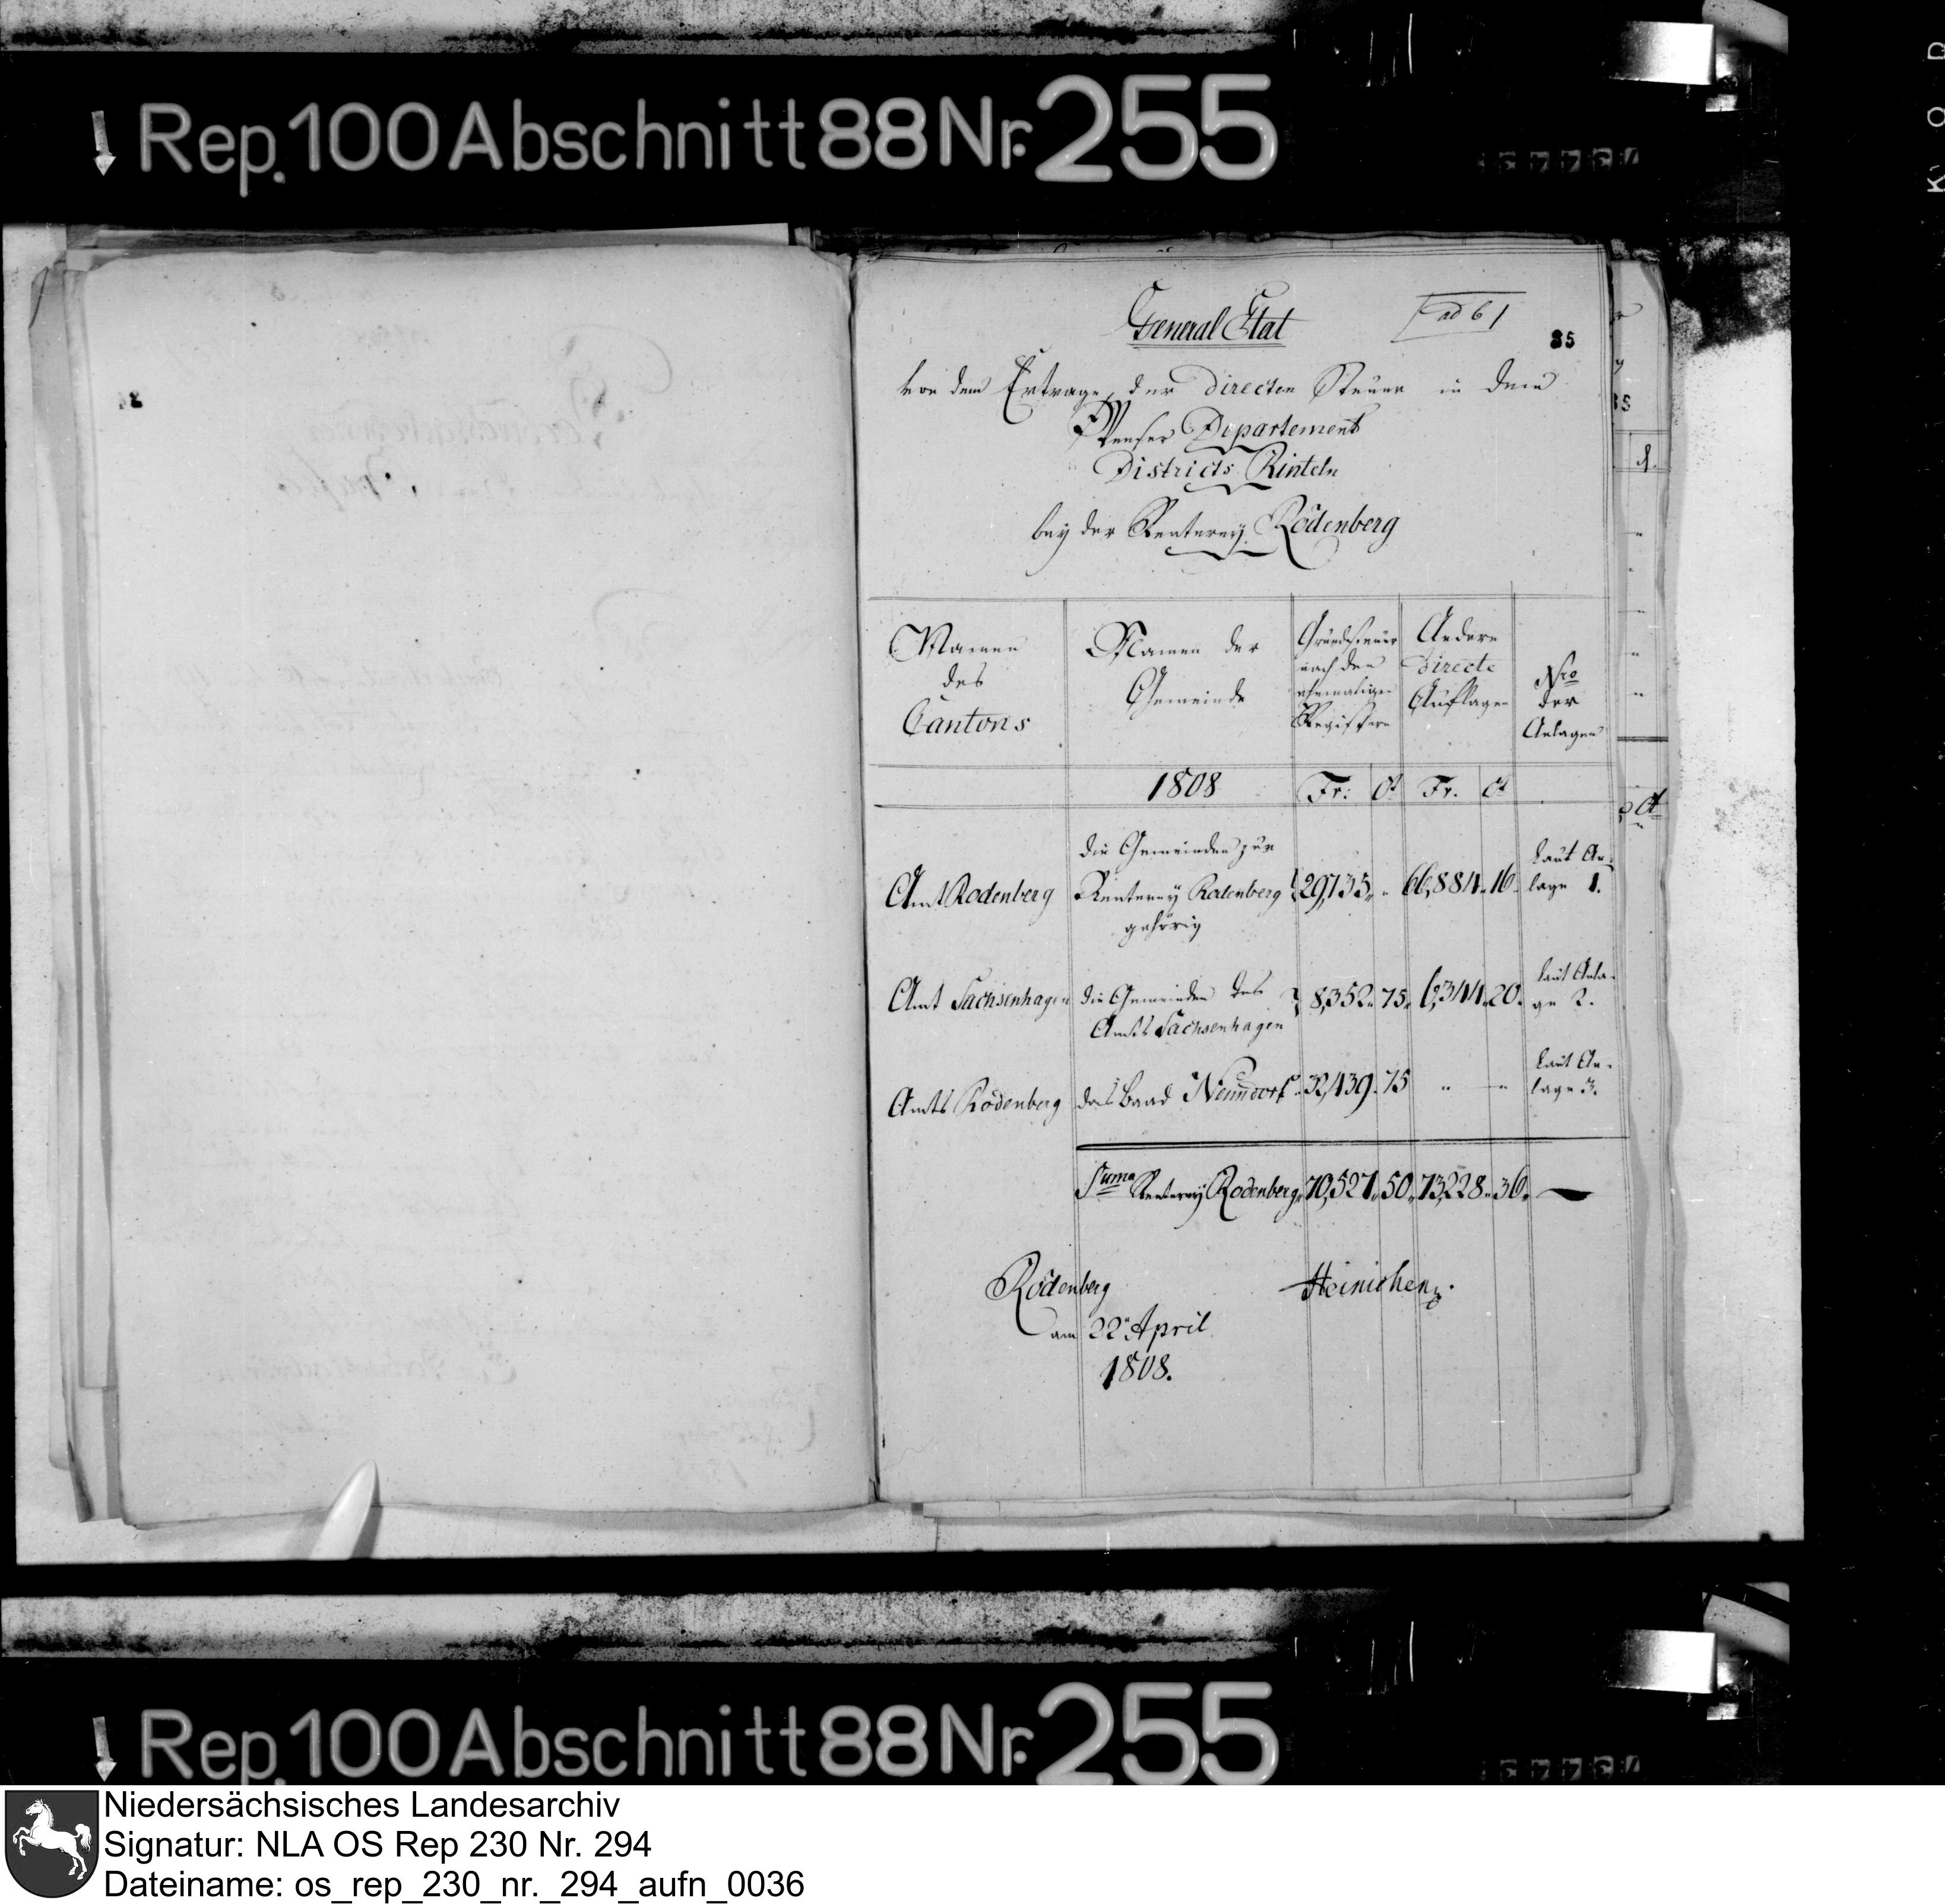 Rep. 100 Abschnitt 88 Nr. 255
General Etat
ad 6
85
von dem Ertrage der directen Steuer in dem
Weser Departement
Districts Rinteln
bey der Renterey Rodenberg
Namen des Cantons
Namen der Gemeinde
Grundsteuer nach den ehemaligen Registern
Andere directe Auflagen
Nro der Anlagen
1808 Fr: Ct Fr. Ct
Amt Rodenberg
die Gemeinden zur
Renterey Rodenberg
gehörig
29,735 " " 66,884 " 16
Laut An-
lage 1.
Amt Sachsenhagen
die Gemeinden des
Amts Sachsenhagen
8,352 " 75 " 6,344 " 20
Laut Anla-
ge 2.
Amts Rodenberg
das Baad Nenndorf
32,439 " 75 " "
Laut An-
lage 3.
Suma Renterey Rodenberg 70,527 " 50 " 73,228 " 36 " —
Rodenberg
am 22n April
1808.
Heinichen
Rep. 100 Abschnitt 88 Nr. 255
Niedersächsisches Landesarchiv
Signatur: NLA OS Rep 230 Nr. 294
Dateiname: os_rep_230_nr._294_aufn_0036